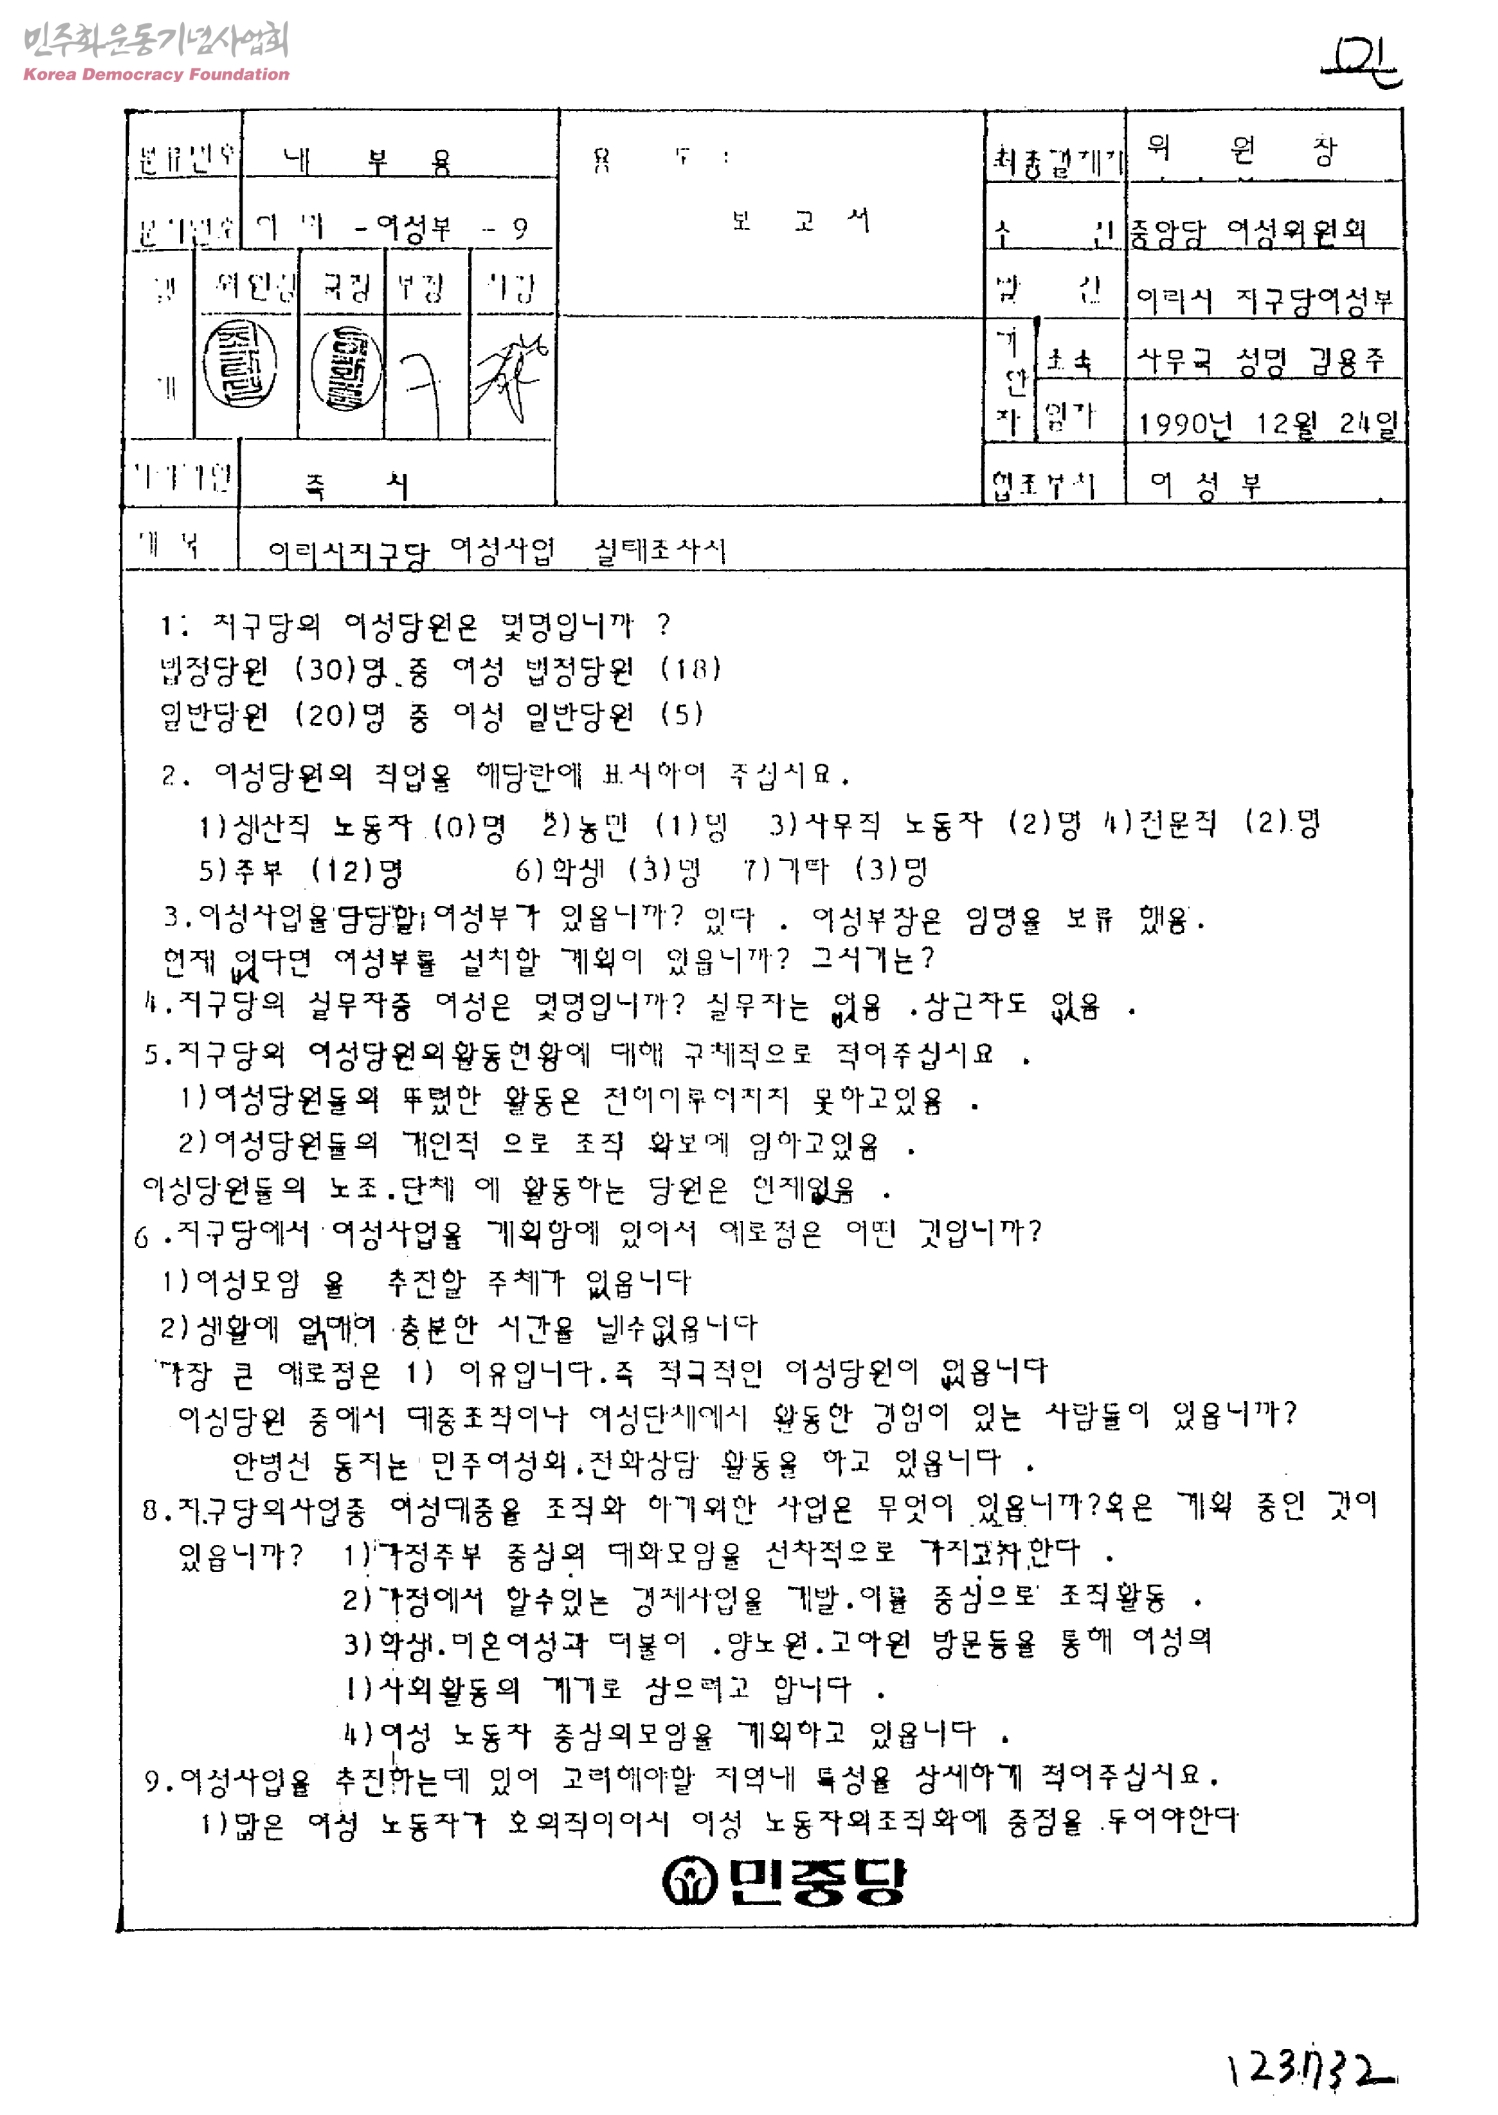 민주화운동기념사업회
Korea Democracy Foundation
분류번호 내 부 용 용 도 : 최종결재자 위 원 장
보 고 서
문서번호 -여성부 -9 수 신 중앙당 여성위원회
결 위원장 국장 부장 차장 발 신 이리시 지구당여성부
재 기안자 소속 사무국 성명 김용주
일자 1990년 12월 24일
즉 시 협조부서 여 성 부
제 목 이리시지구당 여성사업 실태조사서
1. 지구당의 여성당원은 몇명입니까 ?
법정당원 (30)명 중 여성 법정당원 (18)
일반당원 (20)명 중 여성 일반당원 (5)
2. 여성당원의 직업을 해당란에 표시하여 주십시요.
1)생산직 노동자 (0)명 2)농민 (1)명 3)사무직 노동자 (2)명 4)전문직 (2)명
5)주부 (12)명 6)학생 (3)명 7)기타 (3)명
3.여성사업을 담당할 여성부가 있읍니까? 있다 . 여성부장은 임명을 보류 했음.
현재 없다면 여성부를 설치할 계획이 있읍니까? 그시기는?
4.지구당의 실무자중 여성은 몇명입니까? 실무자는 없음 .상근자도 없음 .
5.지구당의 여성당원의활동현황에 대해 구체적으로 적어주십시요 .
1)여성당원들의 뚜렸한 활동은 전혀이루어지지 못하고있음 .
2)여성당원들의 개인적 으로 조직 확보에 임하고있음 .
여성당원들의 노조.단체 에 활동하는 당원은 현재없음 .
6.지구당에서 여성사업을 계획함에 있어서 애로점은 어떤 것입니까?
1)여성모임 을 추진할 주체가 없읍니다
2)생활에 얽매여 충분한 시간을 낼수없읍니다
가장 큰 애로점은 1) 이유입니다.즉 적극적인 여성당원이 없읍니다
여성당원 중에서 대중조직이나 여성단체에서 활동한 경험이 있는 사람들이 있읍니까?
안병선 동지는 민주여성회.전화상담 활동을 하고 있읍니다 .
8.지구당의사업중 여성대중을 조직화 하기위한 사업은 무엇이 있읍니까?혹은 계획 중인 것이
있읍니까? 1)가정주부 중심의 대화모임을 선차적으로 가지고자한다 .
2)가정에서 할수있는 경제사업을 개발.이를 중심으로 조직활동 .
3)학생.미혼여성과 더불어 .양노원.고아원 방문등을 통해 여성의
1)사회활동의 계기로 삼으려고 합니다 .
4)여성 노동자 중심의모임을 계획하고 있읍니다 .
9.여성사업을 추진하는데 있어 고려해야할 지역내 특성을 상세하게 적어주십시요.
1)많은 여성 노동자가 호의적이어서 여성 노동자의조직화에 중점을 두어야한다
민중당
123732